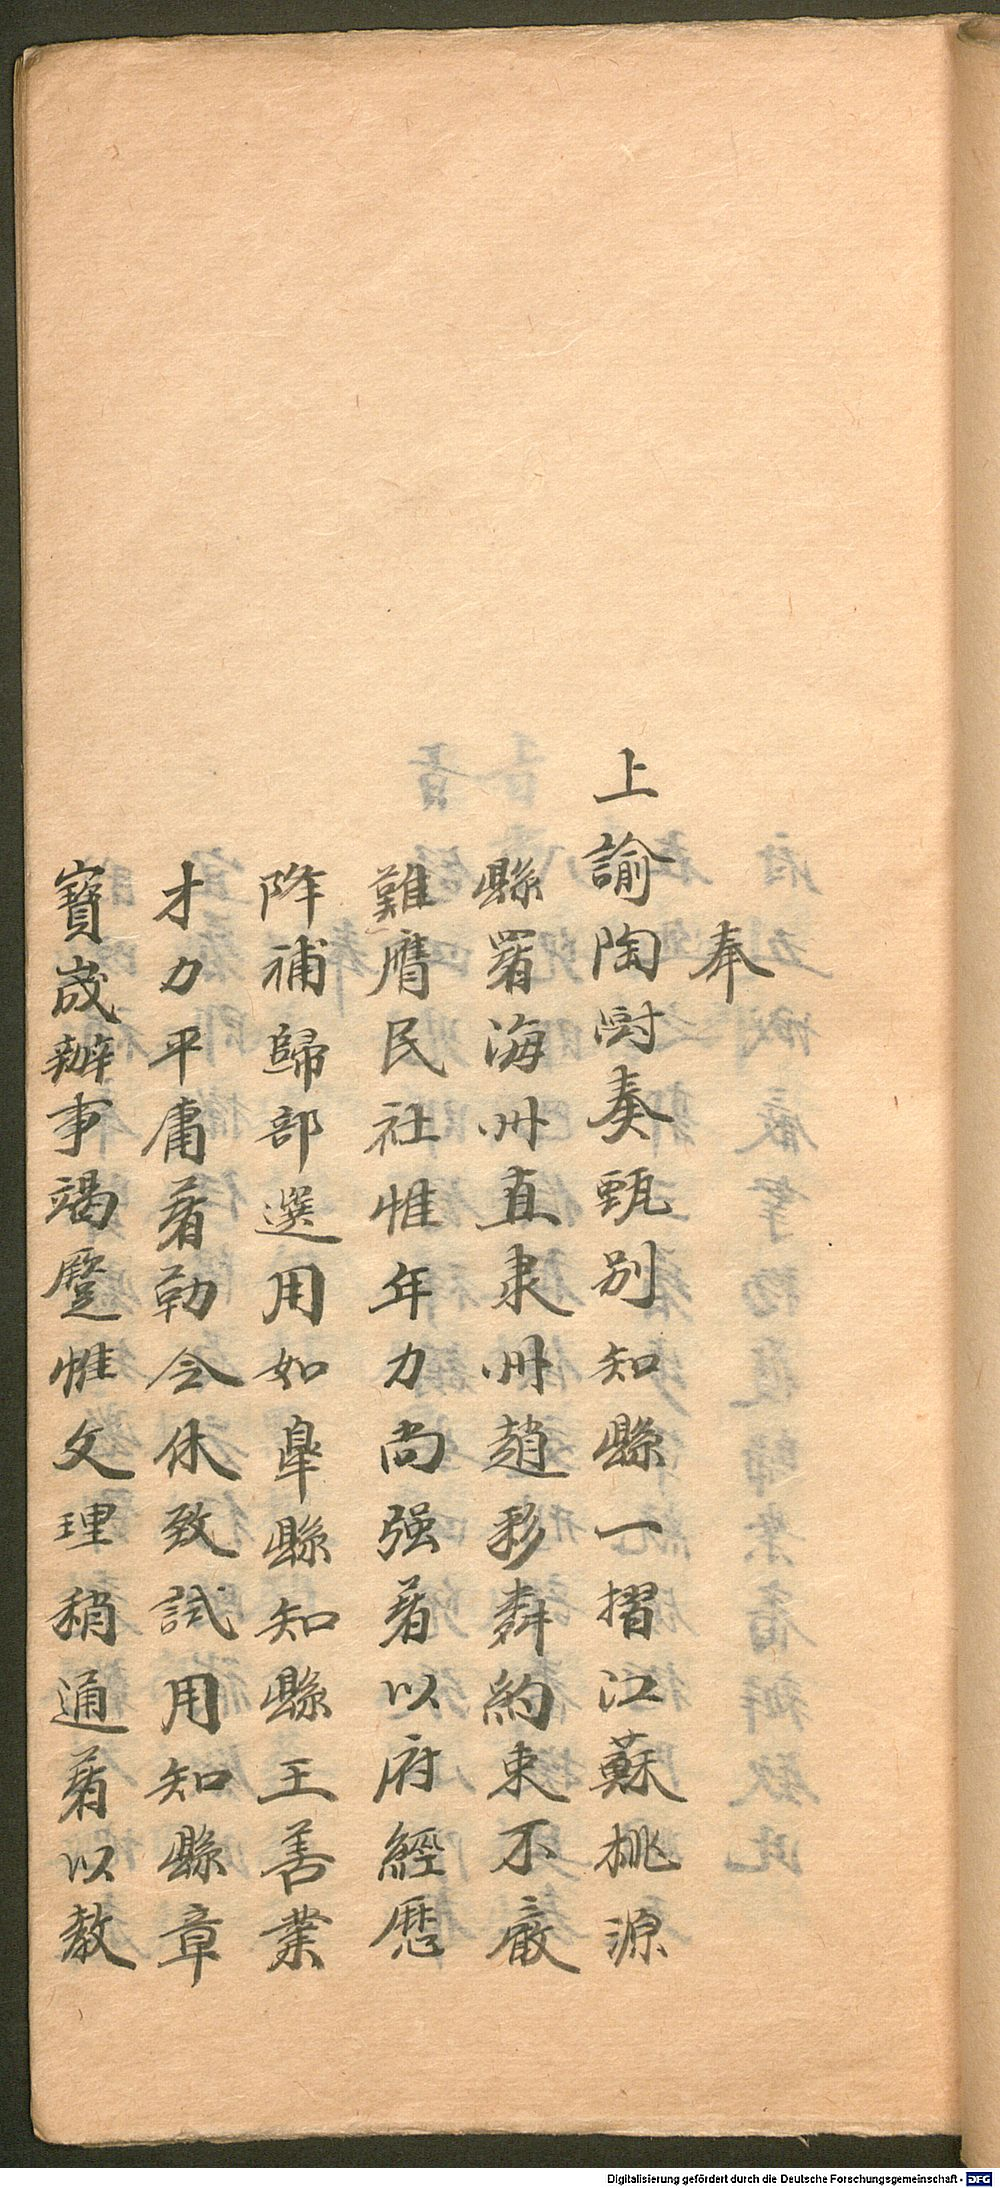 奉
上諭陶澍奏甄別知縣一摺江蘇桃源
縣署海州直隶州趙彩麟約束不嚴
難膺民社惟年力尚强着以府經歷
降補歸部選用如皋縣知縣王善業
才力平庸着勒令休致試用知縣章
寶嵗辦事竭蹷惟文理稍通着以教
Digitalisierung gefördert durch die Deutsche Forschungsgemeinschaft - DFG